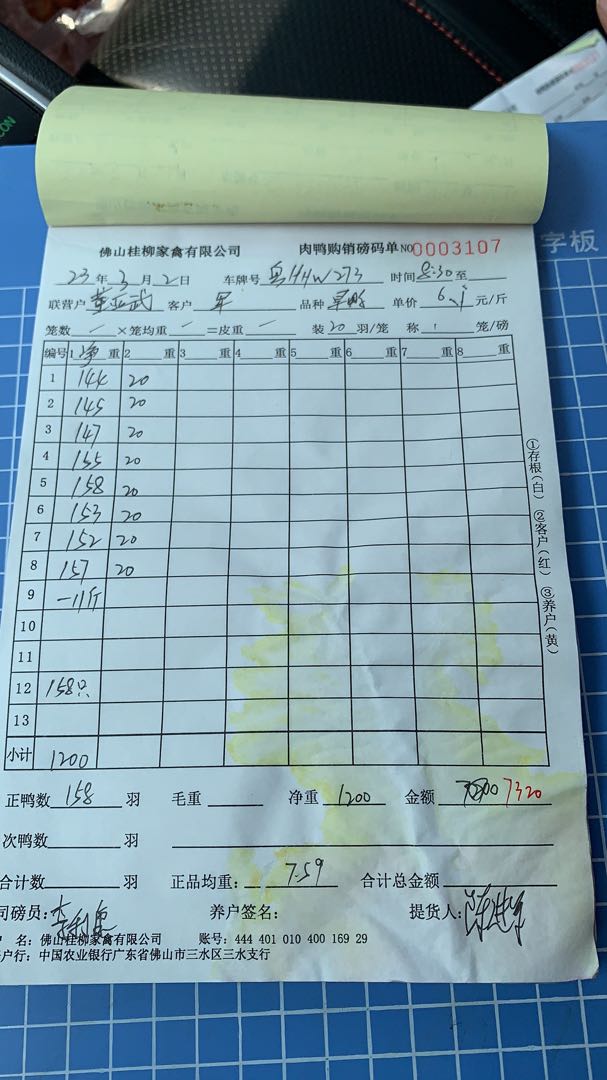 字板
佛山桂柳家禽有限公司 肉鸭购销磅码单 NO 0003107
23年3月2日 车牌号 粤HHW273 时间8:30至
联营户 客户 军 品种 单价 6.1 元/斤
笼数 一 ×笼均重 一 =皮重 一 装20羽/笼 称 1 笼/磅
编号 1净重 2 重 3 重 4 重 5 重 6 重 7 重 8 重
1 144 20
2 145 20
3 147 20
4 155 20
5 158 20
6 153 20
7 152 20
8 157 20
9 一11斤
10
11
12 158只
13
小计 1200
①存根(白) ②客户(红) ③养户(黄)
正鸭数 158 羽 毛重 净重 1200 金额 7320
次鸭数 羽
合计数 羽 正品均重: 7.59 合计总金额
司磅员: 养户签名: 提货人:
名: 佛山桂柳家禽有限公司 账号: 444 401 010 400 169 29
户行: 中国农业银行广东省佛山市三水区三水支行